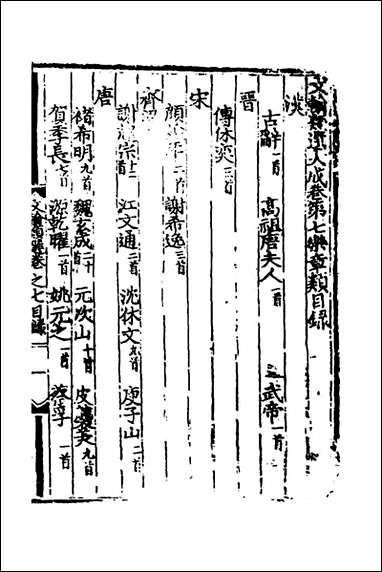 文翰類選大成卷第七樂章類目錄
漢
古辭一首 高祖唐夫人一首 武帝一首
晉
傅休奕三首
宋
顏延年二首 謝希逸三首
齊
謝超宗十二首 江文通二首 沈休文九首 庾子山二首
唐
褚希明九首 魏玄成二十首 元次山十首 皮襲美九首
賀季長首 源乾曜一首 姚元之一首 蔡孚一首
文翰類選卷之七目錄